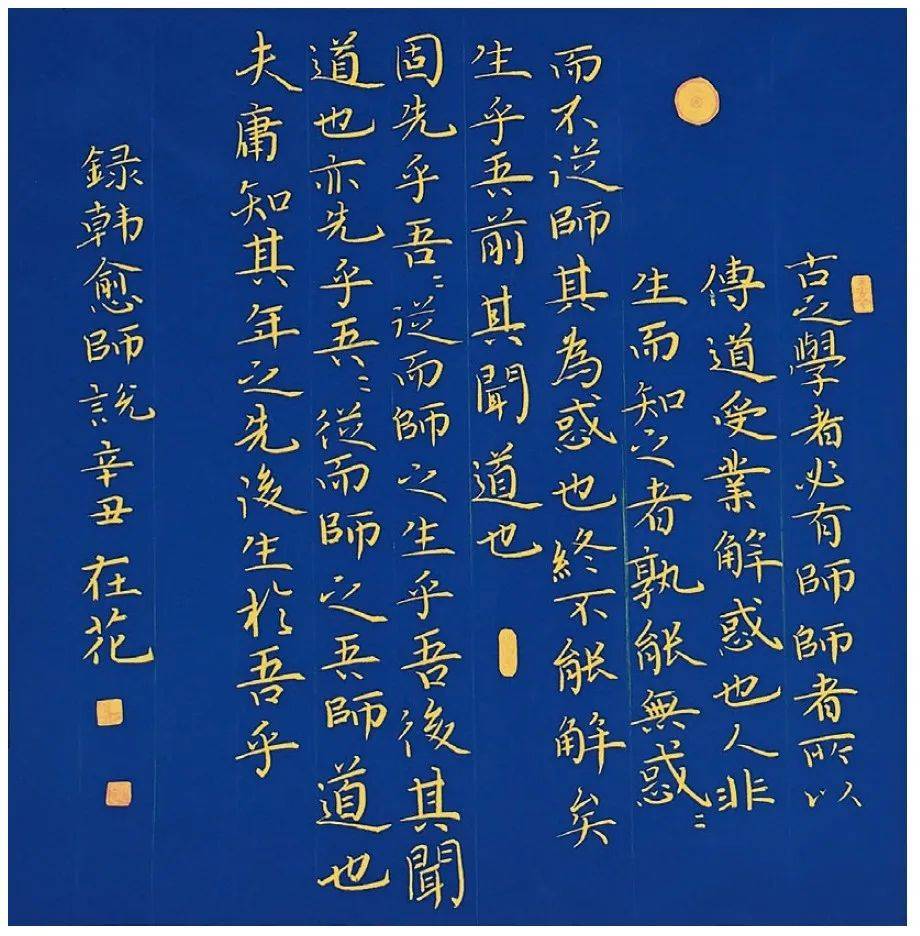 古之學者必有師師者所以
傳道受業解惑也人非
生而知之者孰能無惑〻
而不從師其為惑也終不能解矣
生乎吾前其聞道也
固先乎吾〻從而師之生乎吾後其聞
道也亦先乎吾〻從而師之吾師道也
夫庸知其年之先後生於吾乎
録韩愈師説辛丑在花